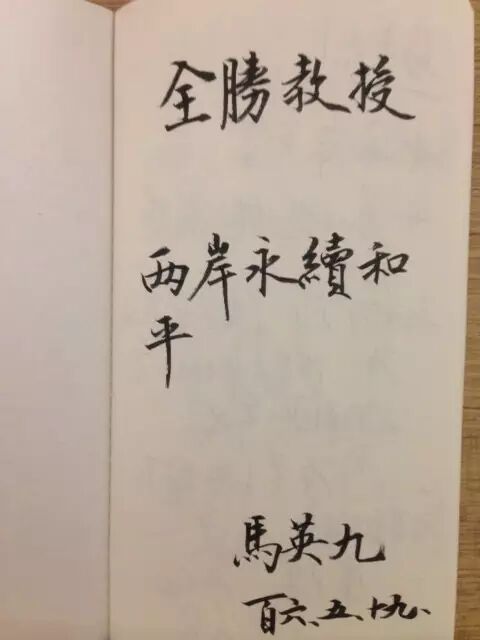 全勝教授
两岸永續和
平
馬英九
百六、五、十九、